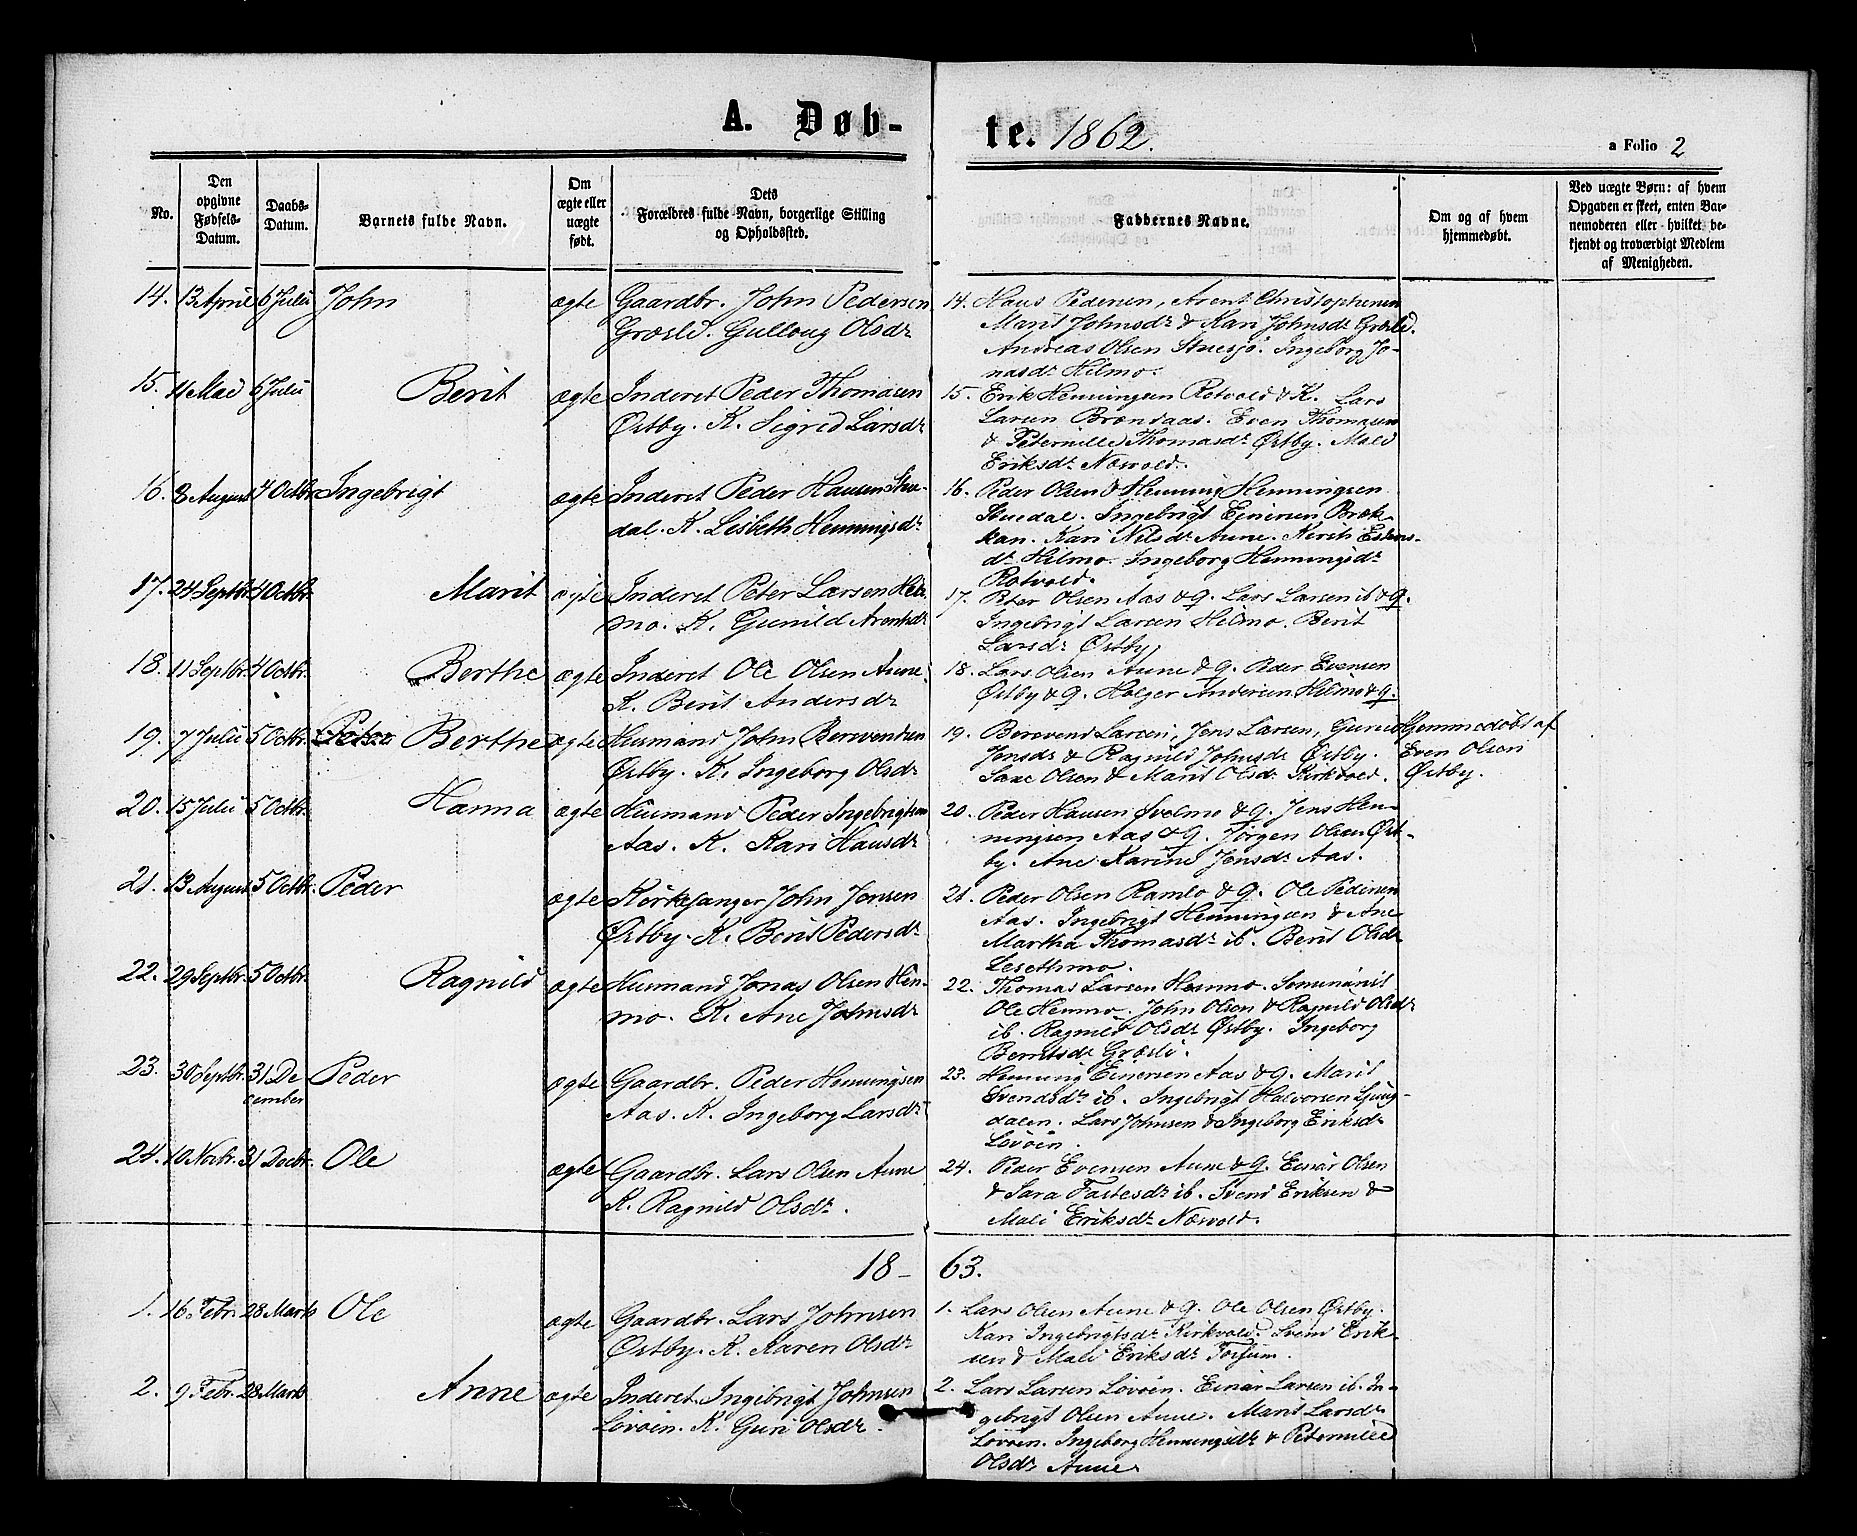 A. Døb-
te. 1862.
a Folio 2
No.
Den opgivne Fødsels-Datum.
Daabs-Datum.
Barnets fulde Navn.
Om ægte eller uægte født.
Dets
Forældres fulde Navn, borgerlige Stilling
og Opholdssted.
Faddernes Navne.
Om og af hvem
hjemmedøbt.
Ved uægte Børn: af hvem
Opgaven er skeet, enten Bar-
nemoderen eller hvilket be-
kjendt og troværdigt Medlem
af Menigheden.
14. 13 April 6 Julii John ægte Gaardbr. John Pedersen
Græsli. Gulloug Olsdr
14. Hans Pedersen, Arent Christophersen
Marit Johnsdr & Kari Johnsdr Græsli.
Andreas Olsen Stuesjö. Ingeborg Jo-
nasdr Hilmo.
15. 4 Mai 6 Julii Berit ægte Inderst Peder Thomasen
Østby. K. Sigrid Larsdr
15. Erik Henningsen Rotvold & K. Lars
Larsen Brændaas. Even Thomasen
& Peternille Thomasdr Østby. Mali
Eriksdr Næsvold.
16. 8 August 4 Octbr. Ingebrigt ægte Inderst Peder Hansen Stue-
dal. K. Lisbeth Henningsdr
16. Peder Olsen & Henning Henningsen
Stuedal. Ingebrigt Ejnersen Bræk-
kan. Kari Nilsdr Aune. Kirsti Estens-
dr Hilmo. Ingeborg Henningsdr
Rotvold.
17. 24 Septbr. 4 Octbr. Marit ægte Inderst Peter Larsen Hel-
mo. K. Gunild Arentsdr
17. Peter Olsen Aas & g. Lars Larsen ib & g.
Ingebrigt Larsen Hilmo. Berit
Larsdr Østby
18. 11 Septbr. 4 Octbr. Berthe ægte Inderst Ole Olsen Aune.
K. Berit Andersdr
18. Lars Olsen Aune & g. Peder Evensen
Østby & g. Holger Andersen Hilmo & g.
19. 7 Julii 5 Octbr. Berthe ægte Husmand John Berevendsen
Østby. K. Ingeborg Olsdr
19. Berevend Larsen, Jens Larsen, Guru
Jensdr & Ragnild Johnsdr Østby.
Saxe Olsen & Marit Olsdr Kirkvold.
Hjemmedøbt af
Even Olsen
Østby.
20. 15 Julii 5 Octbr. Hanna ægte Husmand Peder Ingebrigtsen
Aas. K. Kari Hansdr
20. Peder Hansen Øvelmo & g. Jens Hen-
ningsen Aas & g. Jørgen Olsen Øst-
by. Ane Karine Jensdr Aas.
21. 13 August 5 Octbr. Peder ægte Kirkesanger John Jensen
Østby. K. Berit Pedersdr
21. Peder Olsen Ramlo & g. Ole Pedersen
Aas. Ingebrigt Henningsen & Ane
Martha Thomasdr ib. Berit Olsdr
Lesethmo.
22. 29 Septbr. 5 Octbr. Ragnild ægte Husmand Jonas Olsen Hen-
mo. K. Ane Johnsdr
22. Thomas Larsen Henmo. Seminarist
Ole Henmo. John Olsen & Ragnild Olsdr
ib. Ragnild Olsdr Østby. Ingeborg
Berntsdr Græsli.
23. 30 Septbr. 31 De
cember Peder ægte Gaardbr. Peder Henningsen
Aas. K. Ingeborg Larsdr
23. Henning Einersen Aas & g. Marit
Svendsdr ib. Ingebrigt Halvorsen Ljung-
dalen. Lars Johnsen & Ingeborg Eriksdr
Løvøen.
24. 10 Novbr. 31 Decbr. Ole ægte Gaardbr. Lars Olsen Aune
K. Ragnild Olsdr.
24. Peder Evensen Aune & g. Einar Olsen
& Sara Fastesdr ib. Svend Eriksen &
Mali Eriksdr Næsvold.
18- 63.
1. 16 Febr. 28 Marts Ole ægte Gaardbr. Lars Johnsen
Østby. K. Karen Olsdr
1. Lars Olsen Aune & g. Ole Olsen Østby.
Kari Ingebrigtsdr Kirkvold. Svend Erik-
sen & Mali Eriksdr
2. 9 Febr. 28 Marts Anne ægte Inderst Ingebrigt Johnsen
Løvøen. K. Guri Olsdr.
2. Lars Larsen Løvøen. Einar Larsen ib. In-
gebrigt Olsen Aune. Marit Larsdr
Løvøen. Ingeborg Henningsdr & Peternille
Olsdr Aune